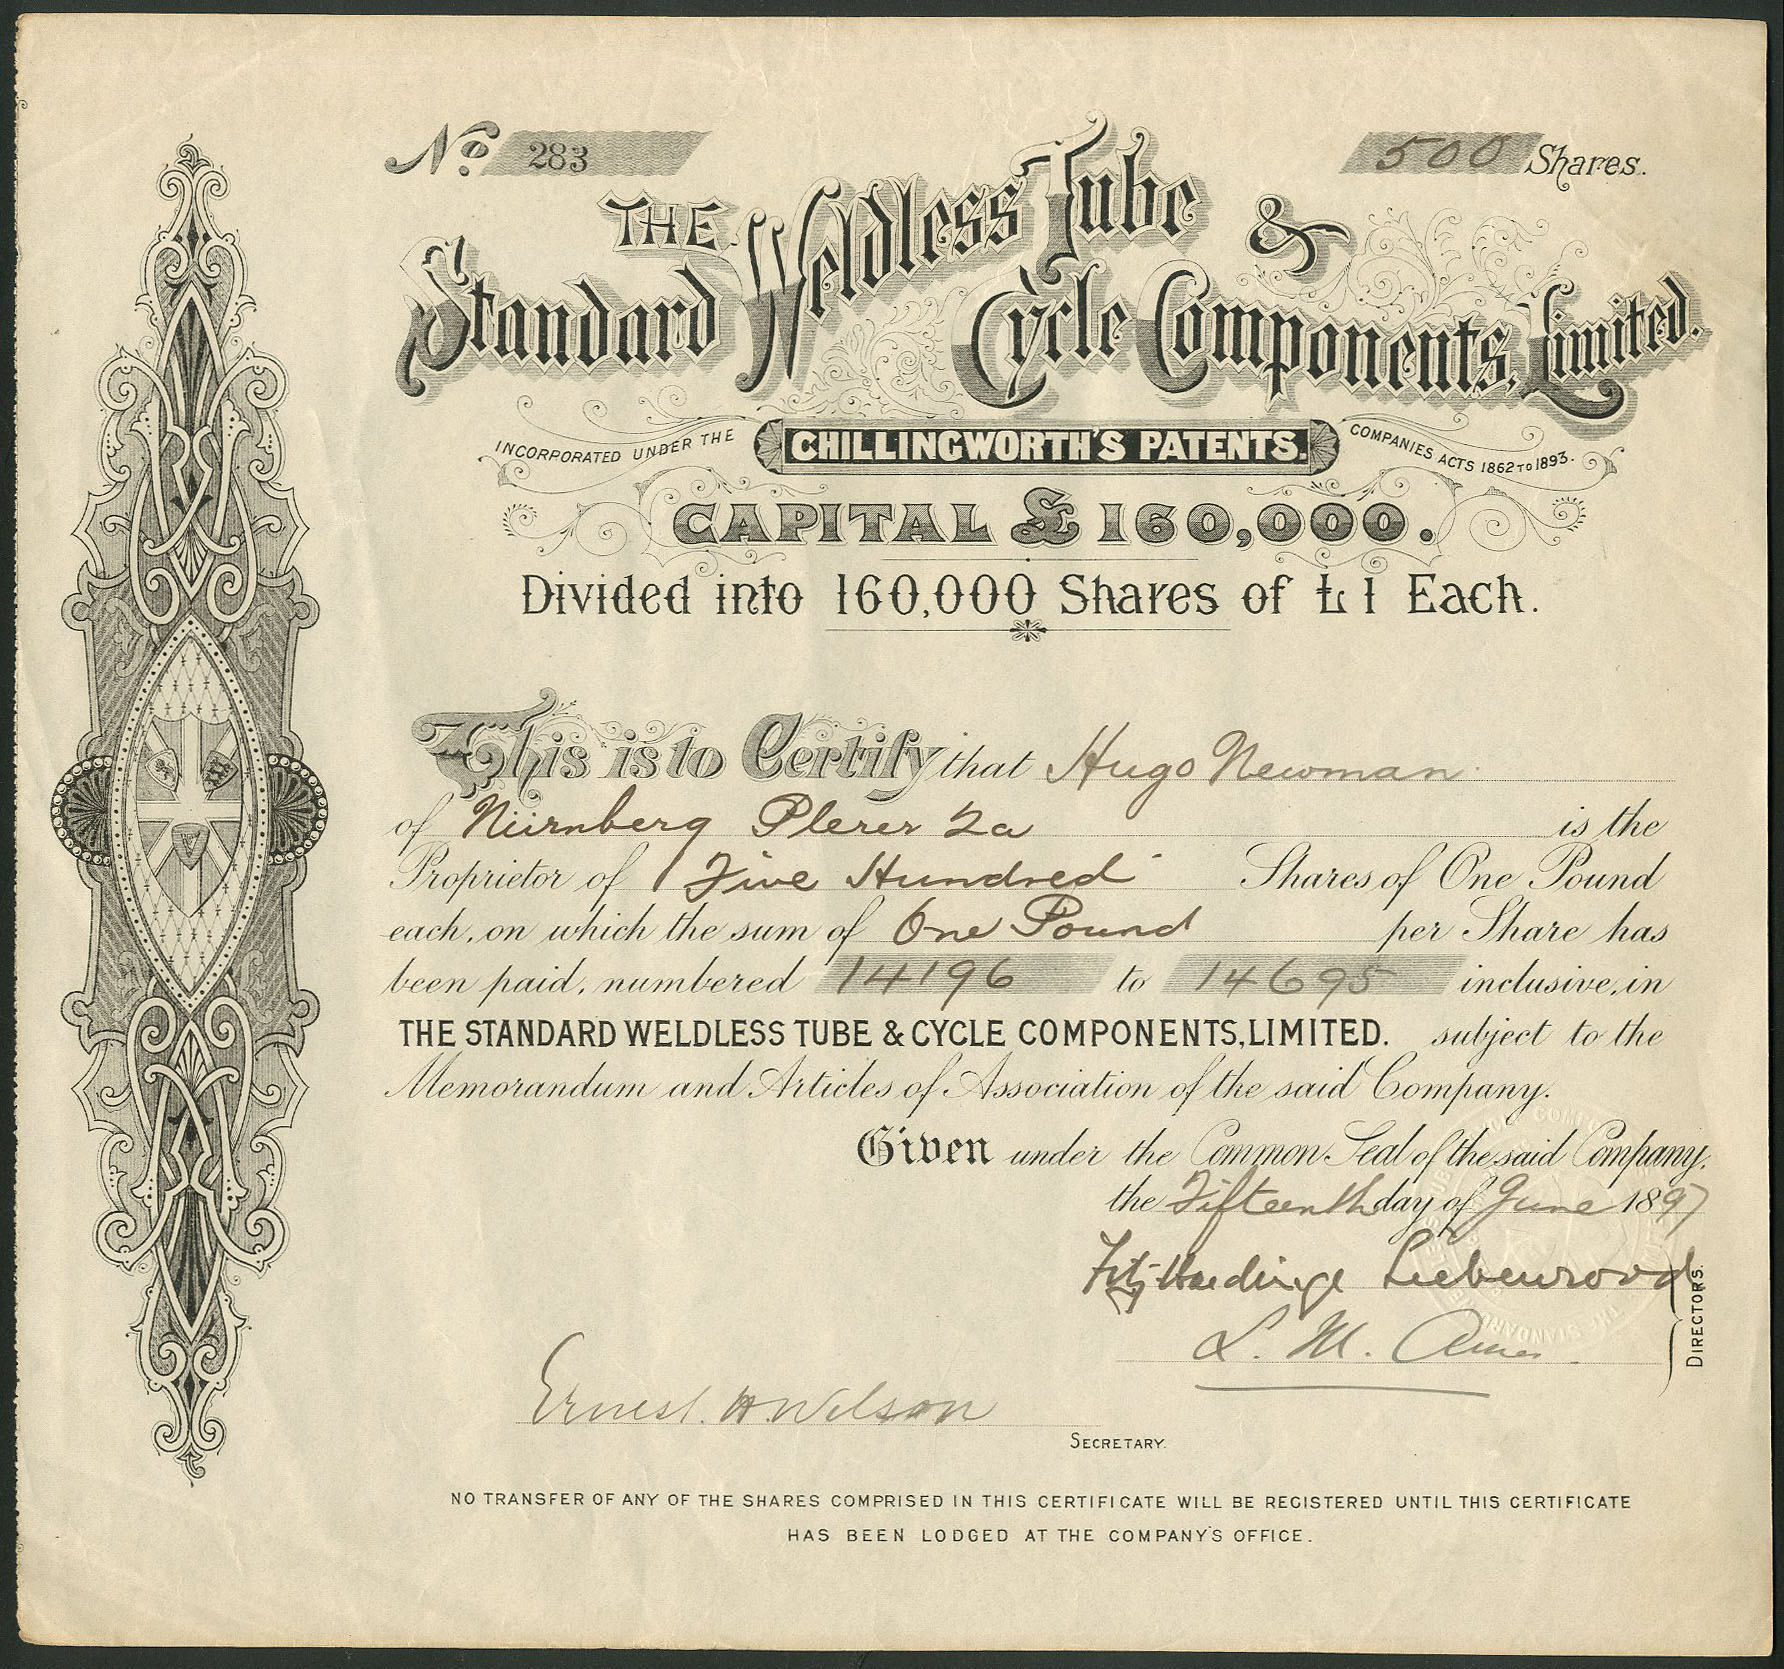 No. 283
500 Shares.
THE Standard Weldless Tube & Cycle Components, Limited.
INCORPORATED UNDER THE CHILLINGWORTH'S PATENTS. COMPANIES ACTS 1862 TO 1893.
CAPITAL £160,000.
Divided into 160,000 Shares of £1 Each.
This is to Certify that Hugo Newman
of Nürnberg Plerer 2a is the
Proprietor of Five Hundred Shares of One Pound
each, on which the sum of One Pound per Share has
been paid, numbered 14196 to 14695 inclusive, in
THE STANDARD WELDLESS TUBE & CYCLE COMPONENTS, LIMITED. subject to the
Memorandum and Articles of Association of the said Company.
Given under the Common Seal of the said Company,
the Fifteenth day of June 1897
L. M.
DIRECTORS.
Ernest. H. Wilson
SECRETARY.
NO TRANSFER OF ANY OF THE SHARES COMPRISED IN THIS CERTIFICATE WILL BE REGISTERED UNTIL THIS CERTIFICATE
HAS BEEN LODGED AT THE COMPANY'S OFFICE.